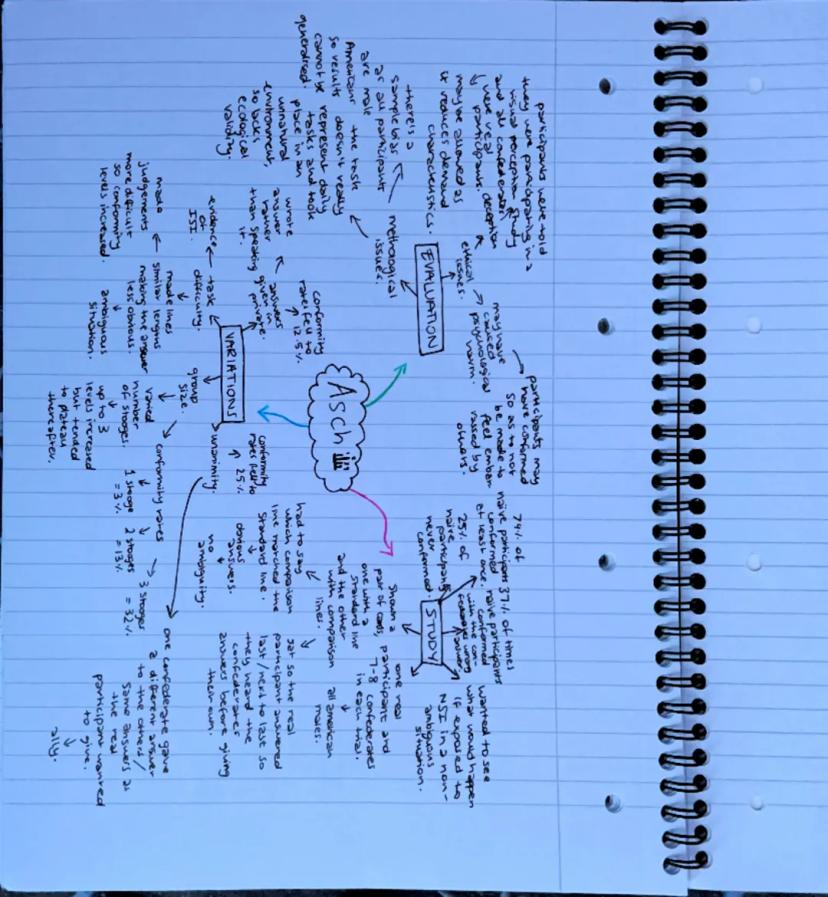 Asch
EVALUATION
ethical
issues.
participants were told
they were participating in a
visual perception study
and all confederates
were real
participants. deception
may be allowed as
it reduces demand
characteristics.
may have
caused
psychological
harm.
participants may
have conformed
so as to not
be made to
feel embar-
rassed by
others.
methological
issues.
there's a
sample bias
as all participants
are male
Americans
so results
cannot be
generalised.
the task
doesn't really
represent daily
tasks and took
place in an
unnatural
environment,
so lacks
ecological
validity.
STUDY
74% of
naive participants
conformed
at least once.
25% of
naive
participants
never
conformed.
37% of times
naive participants
conformed
with the con-
wrong
answer
wanted to see
what would happen
if exposed to
NSI in a non-
ambiguous
situation.
one real
participant and
7-8 confederates
in each trial.
all american
males.
shown a
pair of cards,
one with a
standard line
and the other
with comparison
lines.
had to say
which comparison
line matched the
standard line.
obvious
answers.
no
ambiguity.
sat so the real
participant answered
last/next to last so
they heard the
confederates
answers before giving
their own.
VARIATIONS
answers
given in
private.
conformity
rate fell to
12.5%
wrote
answer
rather
than speaking
it.
task
difficulty.
evidence
of
ISI.
made lines
similar lengths
making the answer
less obvious.
ambiguous
situation.
made
judgements
more difficult
so conformity
levels increased.
group
size.
varied
number
of stooges.
up to 3
levels increased
but tended
to plateau
thereafter.
conformity rates
1 stooge
= 3%
2 stooges
= 13%
3 stooges
= 32%
unanimity.
conformity
rates fell to
25%
one confederate gave
a different answer
to the others/
same answers as
the real
participant wanted
to give.
ally.